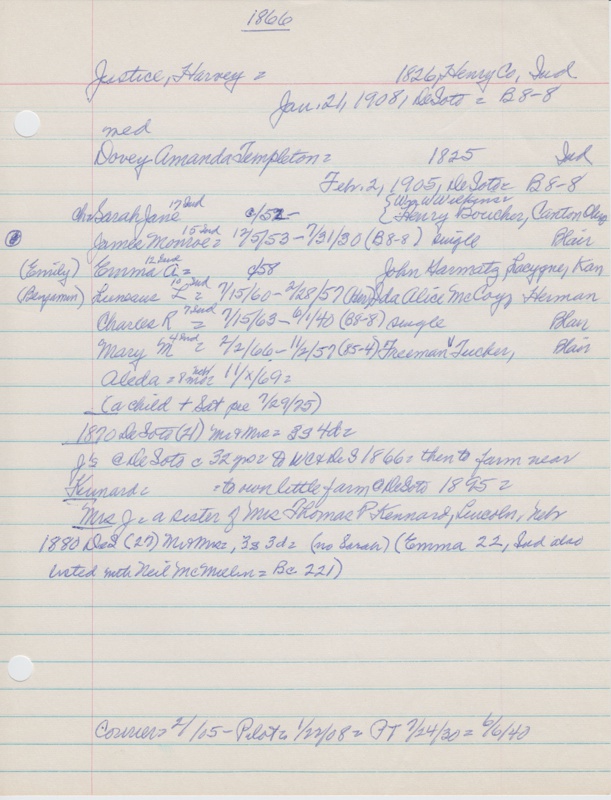 1866
Justice, Harvey = 1826, Henry Co, Ind
Jan. 21, 1908, DeSoto = B8-8
med
Dovey Amanda Templeton = 1825 Ind
Feb. 2, 1905, DeSoto = B8-8
Ch = Sarah Jane 17 Ind c/52- {Wm W Wilkins
Henry Boucher, Canton
James Monroe = 15 Ind 12/5/53 - 7/31/30 (B8-8) single Blair
(Emily) Emma A = 12 Ind c/58 John Harmatz Lacygne, Kan
(Benjamin) L = 10 Ind 7/15/60 - 2/28/57 Ida Alice McCoy, Herman
Charles R = 7 Ind 7/15/63 - 6/1/40 (B8-8) single Blair
Mary M = 4 Ind 2/2/66 - 11/2/57 (85-4) Freeman V Tucker, Blair
Aleda = 8 mos Neb 11/x/69 =
(a child + Sat pie 7/29/75)
1870 DeSoto (21) Mr & Mrs = 3s 4d =
J's @ DeSoto c 32 yrs = to WC & DeS 1866 = then to farm near
Kennard = = to own little farm @ DeSoto 1895 =
Mrs J = a sister of Mrs Thomas P Kennard, Lincoln, Neb
1880 DeS (27) Mr & Mrs =, 3s 3d = (no Sarah) (Emma 22, Ind also
listed with Neil McMillin = Bc 221)
Courier = 2/ /05 - Pilot = 1/22/08 = PT 7/24/30 = 6/6/40